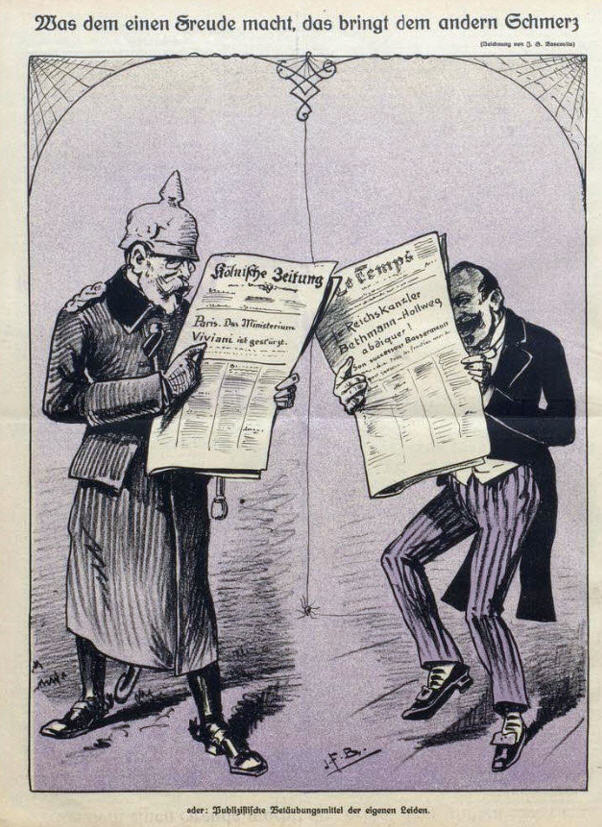 Was dem einen Freude macht, das bringt dem andern Schmerz
(Zeichnung von J. F. Boscovits)
Kölnische Zeitung
Paris. Das Ministerium
Viviani ist gestürzt.
Le Temps
Reichskanzler
Bethmann-Hollweg
abdiquer!
Son successeur Bassermann
J. F. B.
oder: Publizistische Betäubungsmittel der eigenen Leiden.